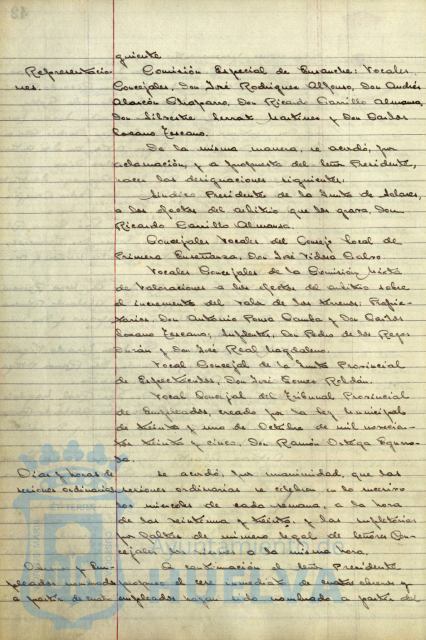 guiente
Representacio Comisión Especial de Ensanche: Vocales
nes. Concejales, Don José Rodríguez Alfonso, Don Andrés
Alarcón Chaparro, Don Ricardo Carrillo Almansa,
Don Silvestre Serrat Martínez y Don Carlos
Lozano Lozcano.
De la misma manera, se acordó, por
aclamación, y a propuesta del señor Presidente,
hacer las designaciones siguientes.
Síndico Presidente de la Junta de Solares,
a los efectos del arbitrio que los grava, Don
Ricardo Carrillo Almansa.
Concejales Vocales del Consejo local de
Primera Enseñanza, Don José Vidosa Calvo.
Vocales Concejales de la Comisión Mixta
de Valoraciones a los efectos del arbitrio sobre
el incremento del valor de los terrenos, Propie-
tarios, Don Antonio Ponce Gamba y Don Carlos
Lozano Lozcano; Suplentes, Don Pedro de los Reyes
Durán y Don José Real Magdaleno.
Vocal Concejal de la Junta Provincial
de Espectáculos, Don José Gómez Roldán.
Vocal Concejal del Tribunal Provincial
de Empleados, creado por la ley Municipal
de treinta y uno de Octubre de mil novecien-
tos treinta y cinco, Don Ramón Ortega
Días y horas de se acordó, por unanimidad, que las
sesiones ordinarias sesiones ordinarias se celebren en lo sucesivo
los miércoles de cada semana, a la hora
de las veintiuna y treinta, y las supletorias
por falta de número legal de señores Con-
cejales los viernes a la misma hora.
Obreros y Em- A continuación el señor Presidente
pleados nombrados propuso el cese inmediato de cuantos obreros y
a partir de cuat empleados hayan sido nombrados a partir del
Ayuntamiento de
HUELVA